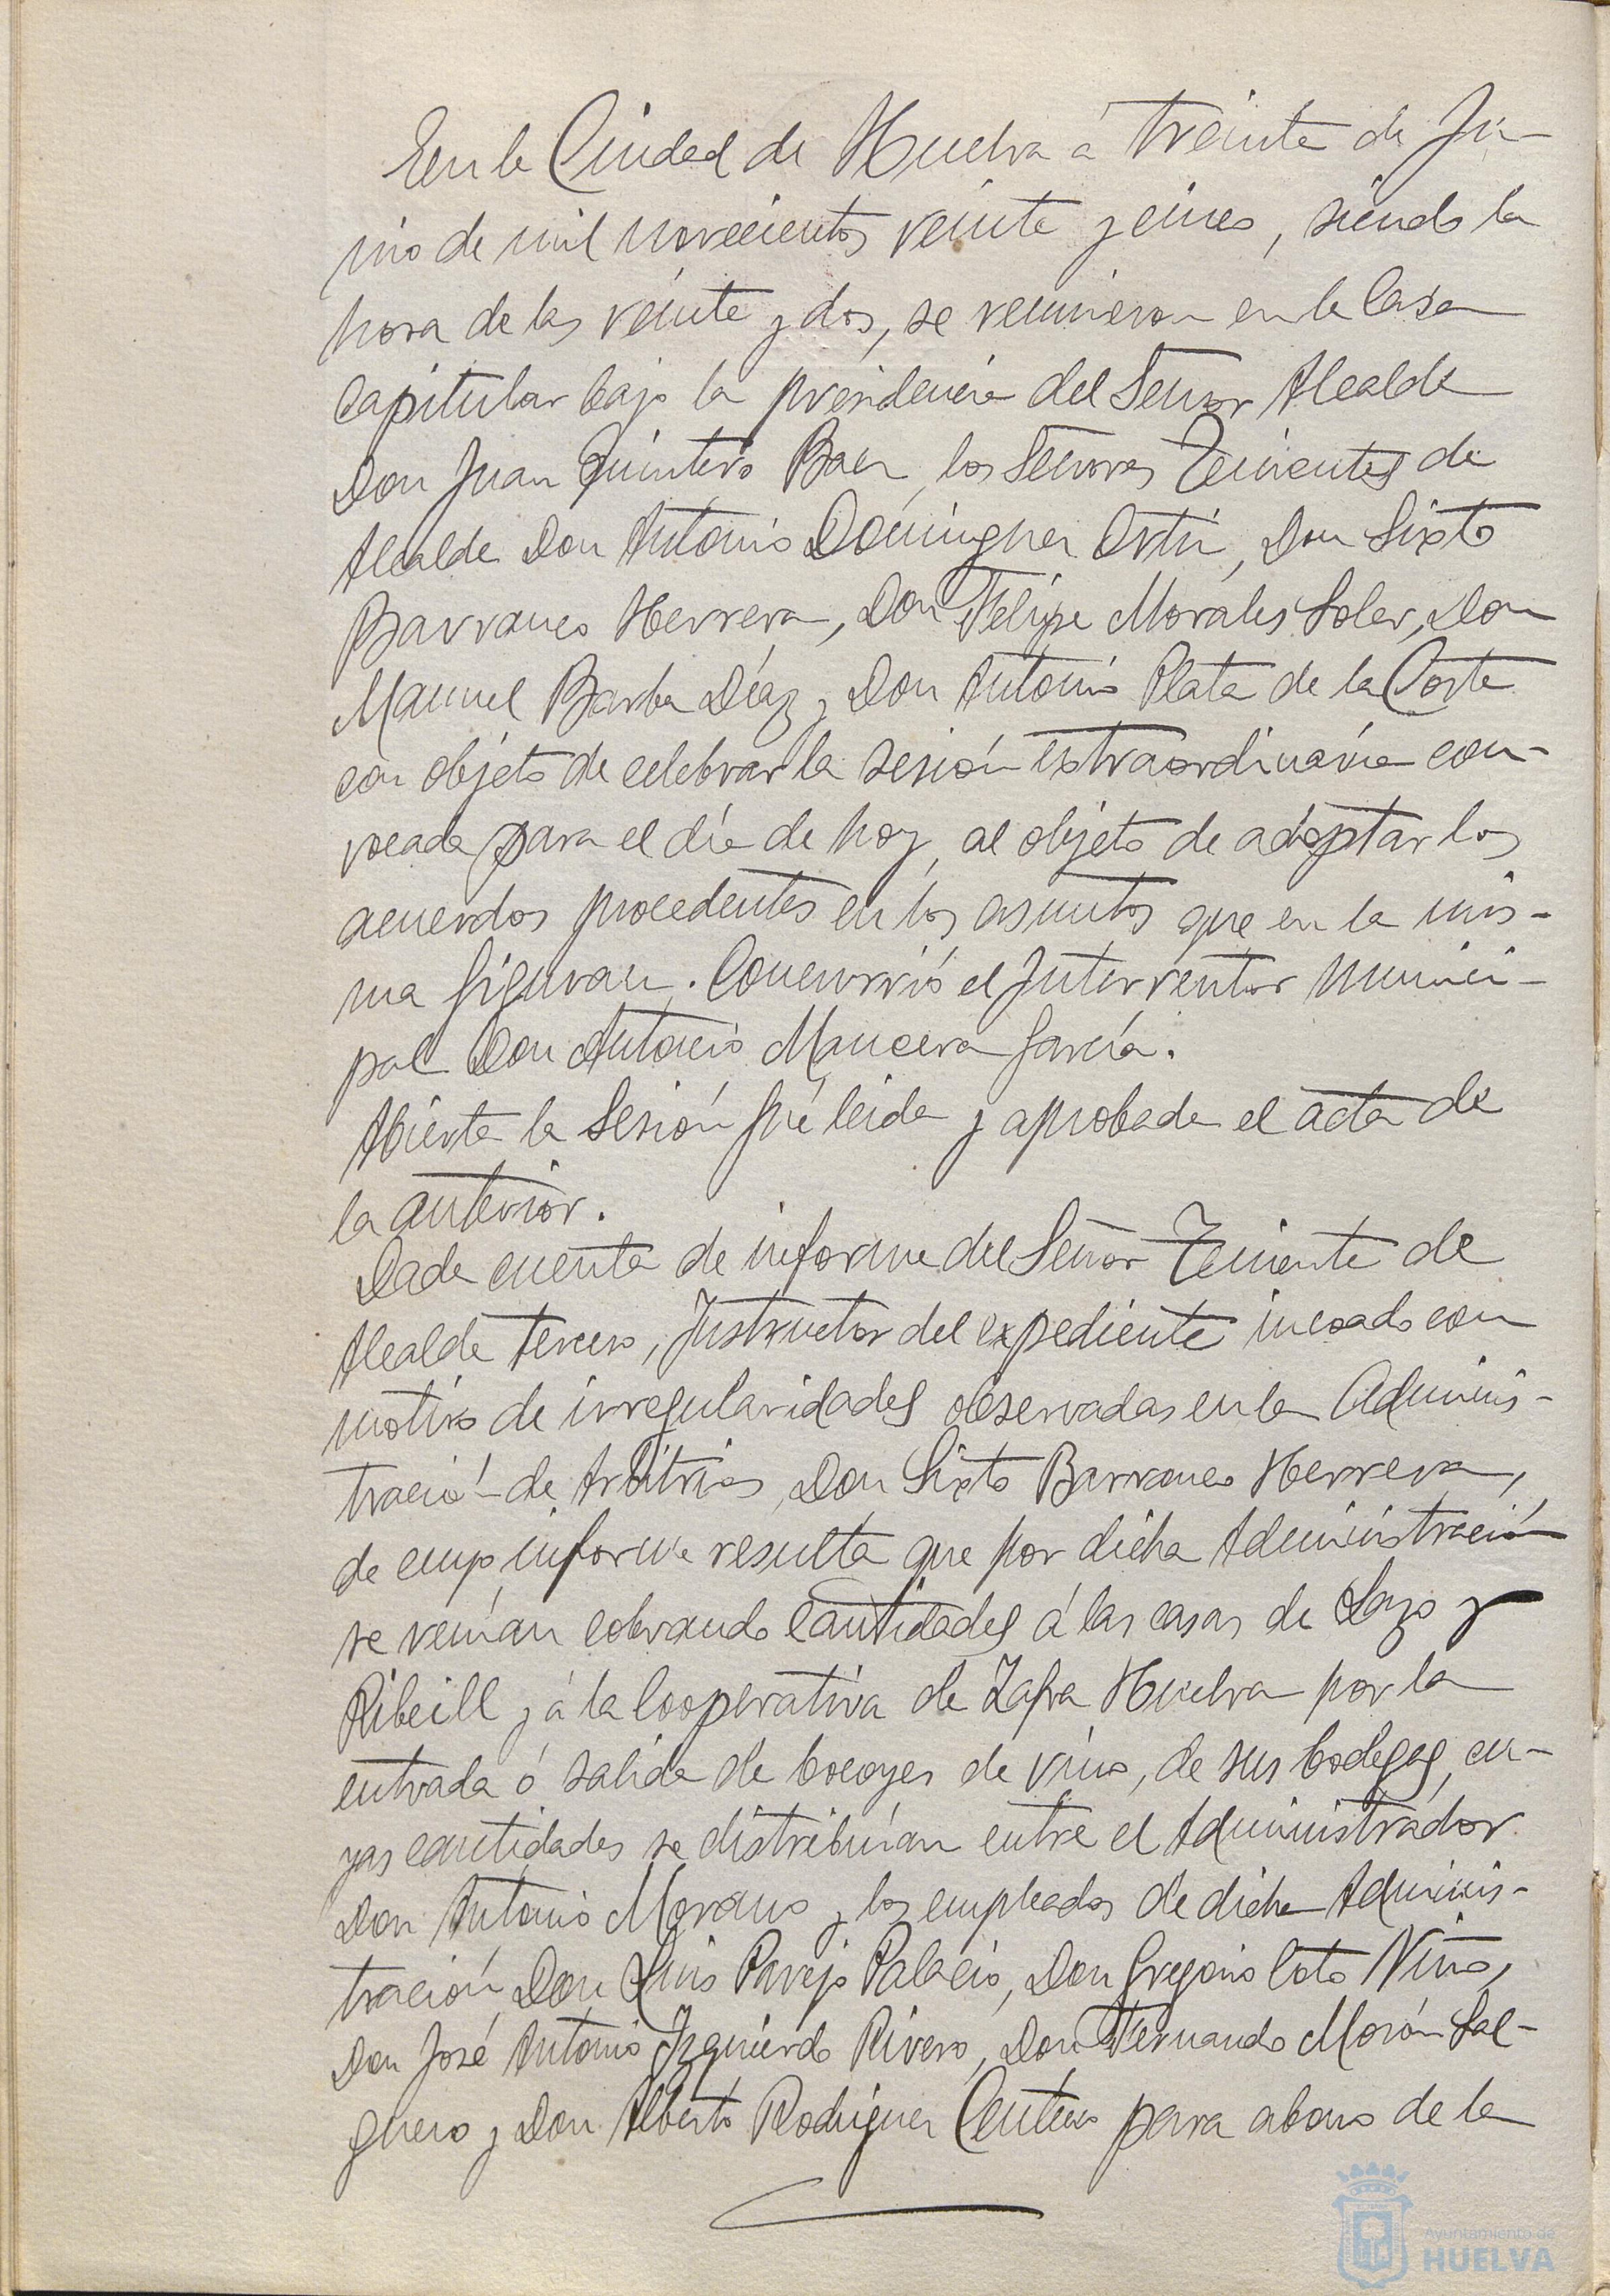 En la Ciudad de Huelva á treinta de Ju-
nio de mil novecientos veinte y cinco, siendo la
hora de las veinte y dos, se reunieron en la Casa
Capitular bajo la presidencia del Señor Alcalde
Don Juan Quintero Baez, los Señores Tenientes de
Alcalde Don Antonio Domínguez Ortiz, Don Sixto
Barranco Herrera, Don Felipe Morales Soler, Don
Manuel Barba Díaz y Don Antonio Plata de la Corte
con objeto de celebrar la sesión extraordinaria con-
vocada para el día de hoy, al objeto de adoptar los
acuerdos procedentes en los asuntos que en la mis-
ma figuran. Concurrió el Interventor munici-
pal Don Antonio Mancera García.
Abierta la Sesión fué leida y aprobada el acta de
la anterior.
Dada cuenta de informe del Señor Teniente de
Alcalde tercero, Instructor del expediente incoado con
motivo de irregularidades observadas en la Adminis-
tración de Arbitrios, Don Sixto Barranco Herrera,
de cuyo informe resulta que por dicha Administración
se venían cobrando cantidades á las casas de Lazo y
Ribeill y á la Cooperativa de Zafra Huelva por la
entrada ó salida de bocoyes de vino, de sus bodegas, cu-
yas cantidades se distribuían entre el Administrador
Don Antonio Morano y los empleados de dicha Adminis-
tración, Don Luis Parejo Palacio, Don Gregorio Coto Niño,
Don José Antonio Izquierdo Rivero, Don Fernando Morón Sal-
guero y Don Alberto Rodríguez Centeno para abono de la
Ayuntamiento de
HUELVA